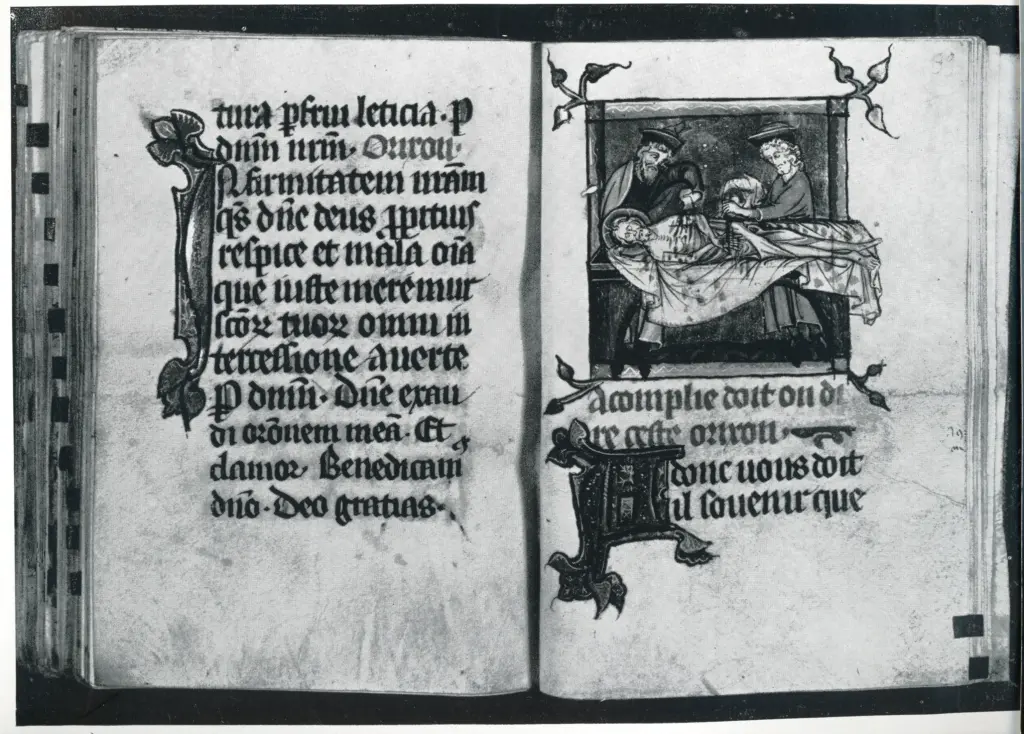 tura p̱frui leticia· P
dnm̄ nrm̄· Orixon·
Nfirmitatem nr̄am
qs̄ dn̄e deus ꝓpitius
respice et mala om̄a
que iuste meremur
sc̄oꝝ tuoꝝ omni in
tercessione auerte
P dnm̄· Dn̄e exau
di or̄onem meā· Et
clamor· Benedicam̄
dn̄o· Deo gratias·
A complie doit on di
re ceste orixon·
A donc uous doit
il souenir que